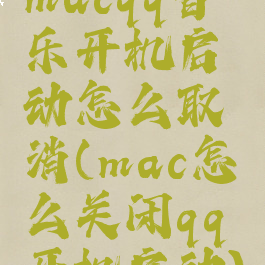 macqq音
乐开机启
动怎么取
消(mac怎
么关闭qq
开机启动)